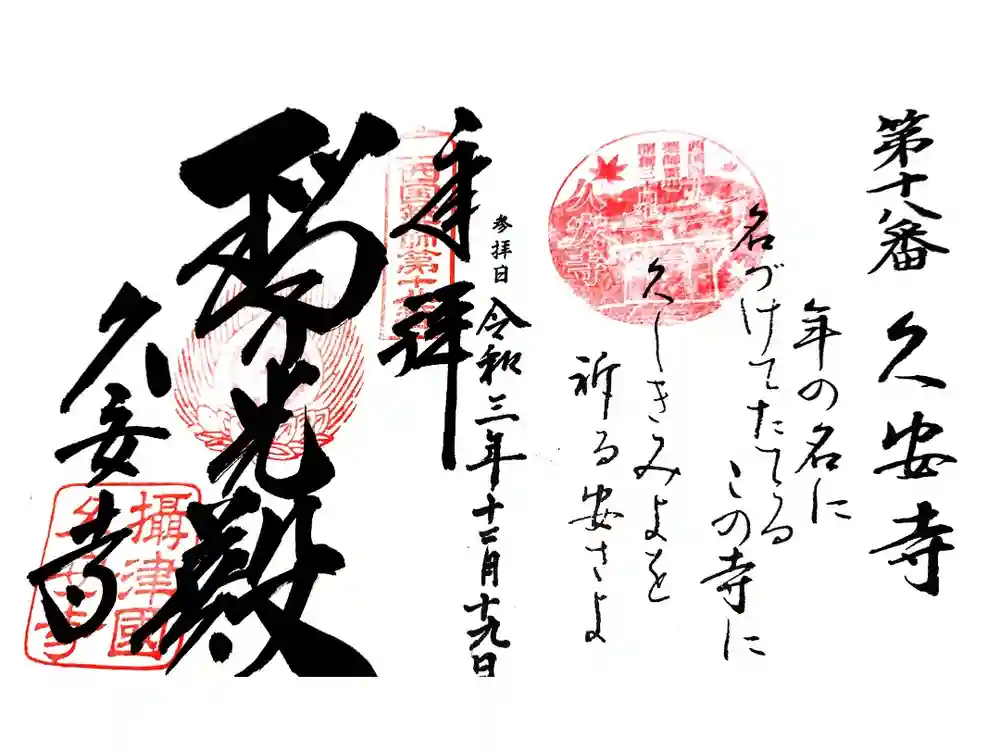 第十八番 久安寺
年の名に
名づけてたてる
この寺に
久しきみよを
祈る安さよ
久安寺
参拝日 令和三年十二月十九日
奉拝
西国薬師第十八番
瑠光殿
久安寺
攝津國
久安寺